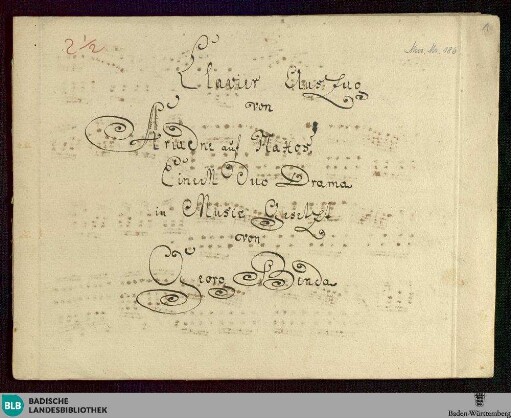 2 1/2
Mus. Hs. 186
Clavier Auszug
von
Ariadne auf Naxos
Einem Duo Drama
in Music Gesetzt
von
Georg Benda
BLB BADISCHE
LANDESBIBLIOTHEK
Baden-Württemberg